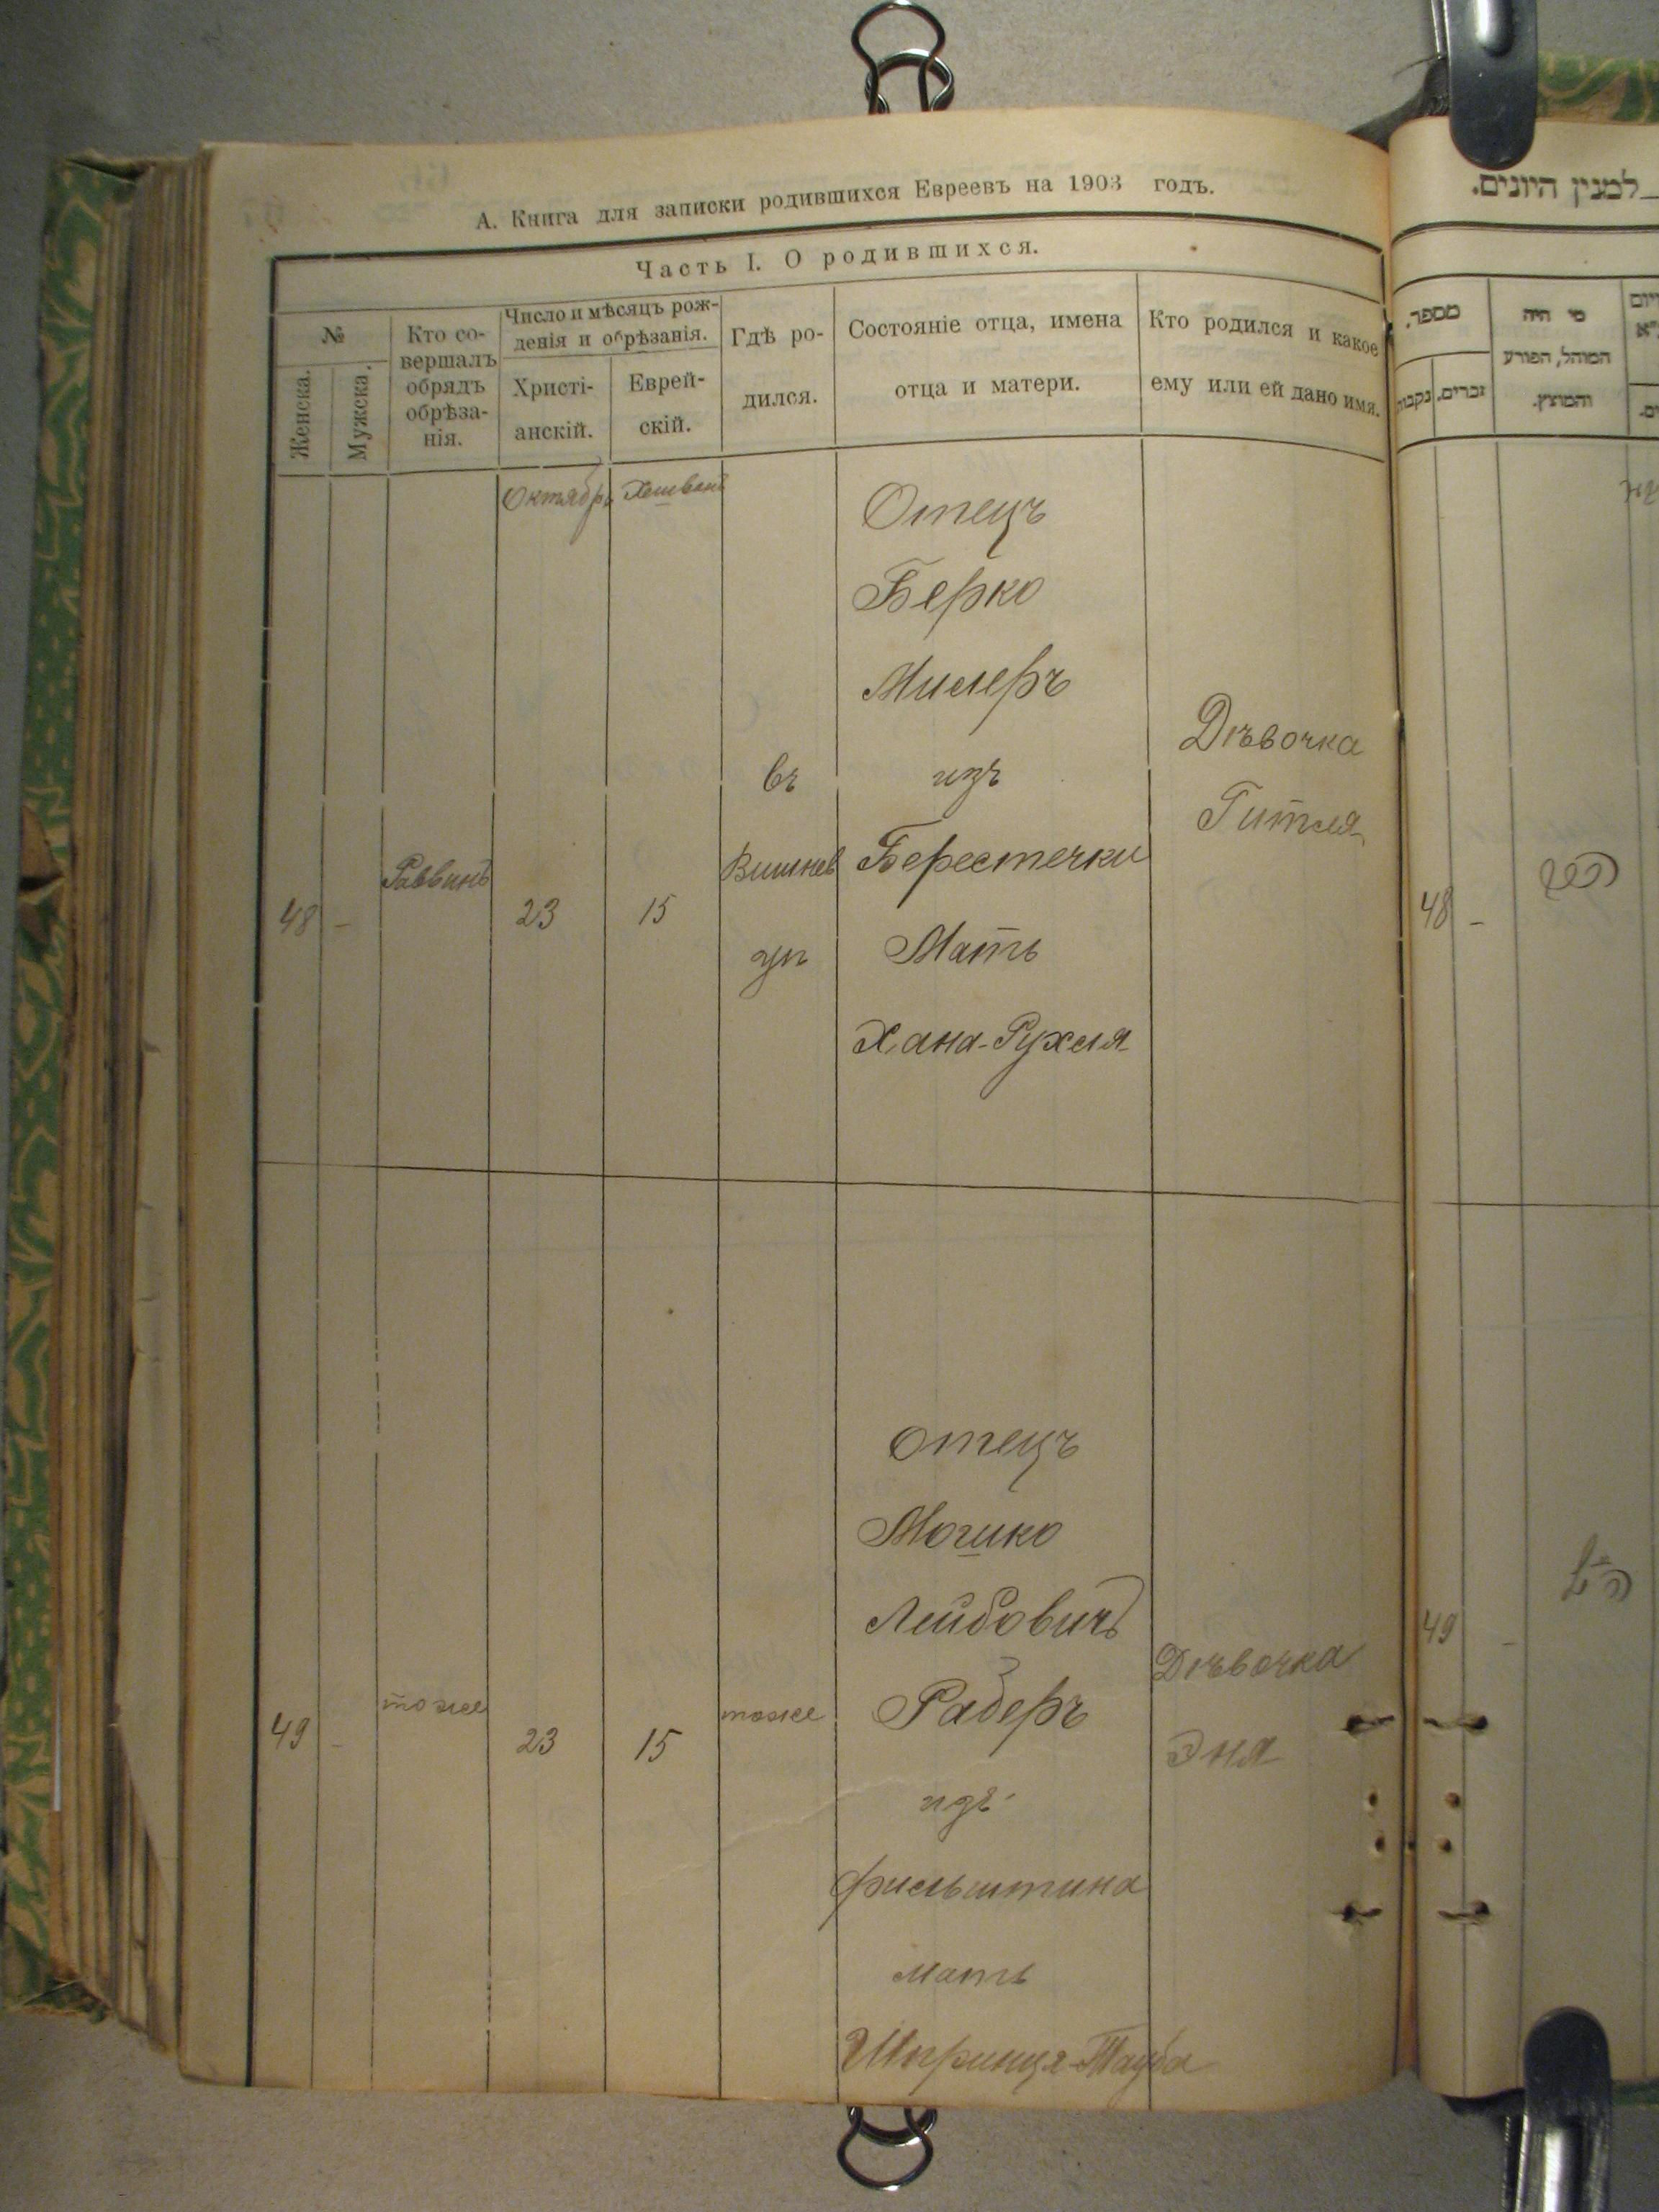 А. Книга для записки родившихся Евреевъ на 1903 годъ.
Часть I. О родившихся.
№
Женска.
Мужска.
Кто со-
вершалъ
обрядъ
обрѣза-
нія.
Число и мѣсяцъ рож-
денія и обрѣзанія.
Христі-
анскій.
Еврей-
скій.
Гдѣ ро-
дился.
Состояніе отца, имена
отца и матери.
Кто родился и какое
ему или ей дано имя.
Октябрь
Хешвонъ
48
-
Раввинъ
23
15
въ
Вишнев
цѣ
Отецъ
Берко
Милеръ
изъ
Берестечки
Мать
Хана-Рухля
Дѣвочка
Гитля
49
-
тоже
23
15
тоже
Отецъ
Мошко
Лейбовичъ
Радеръ
изъ
Фильштина
мать
Шпринця-Тауба
Дѣвочка
Эня
למנין היונים.
מספר.
נקבות.
זכרים.
מי היה
המוהל, הפורע
והמוצץ.
48
-
49
-